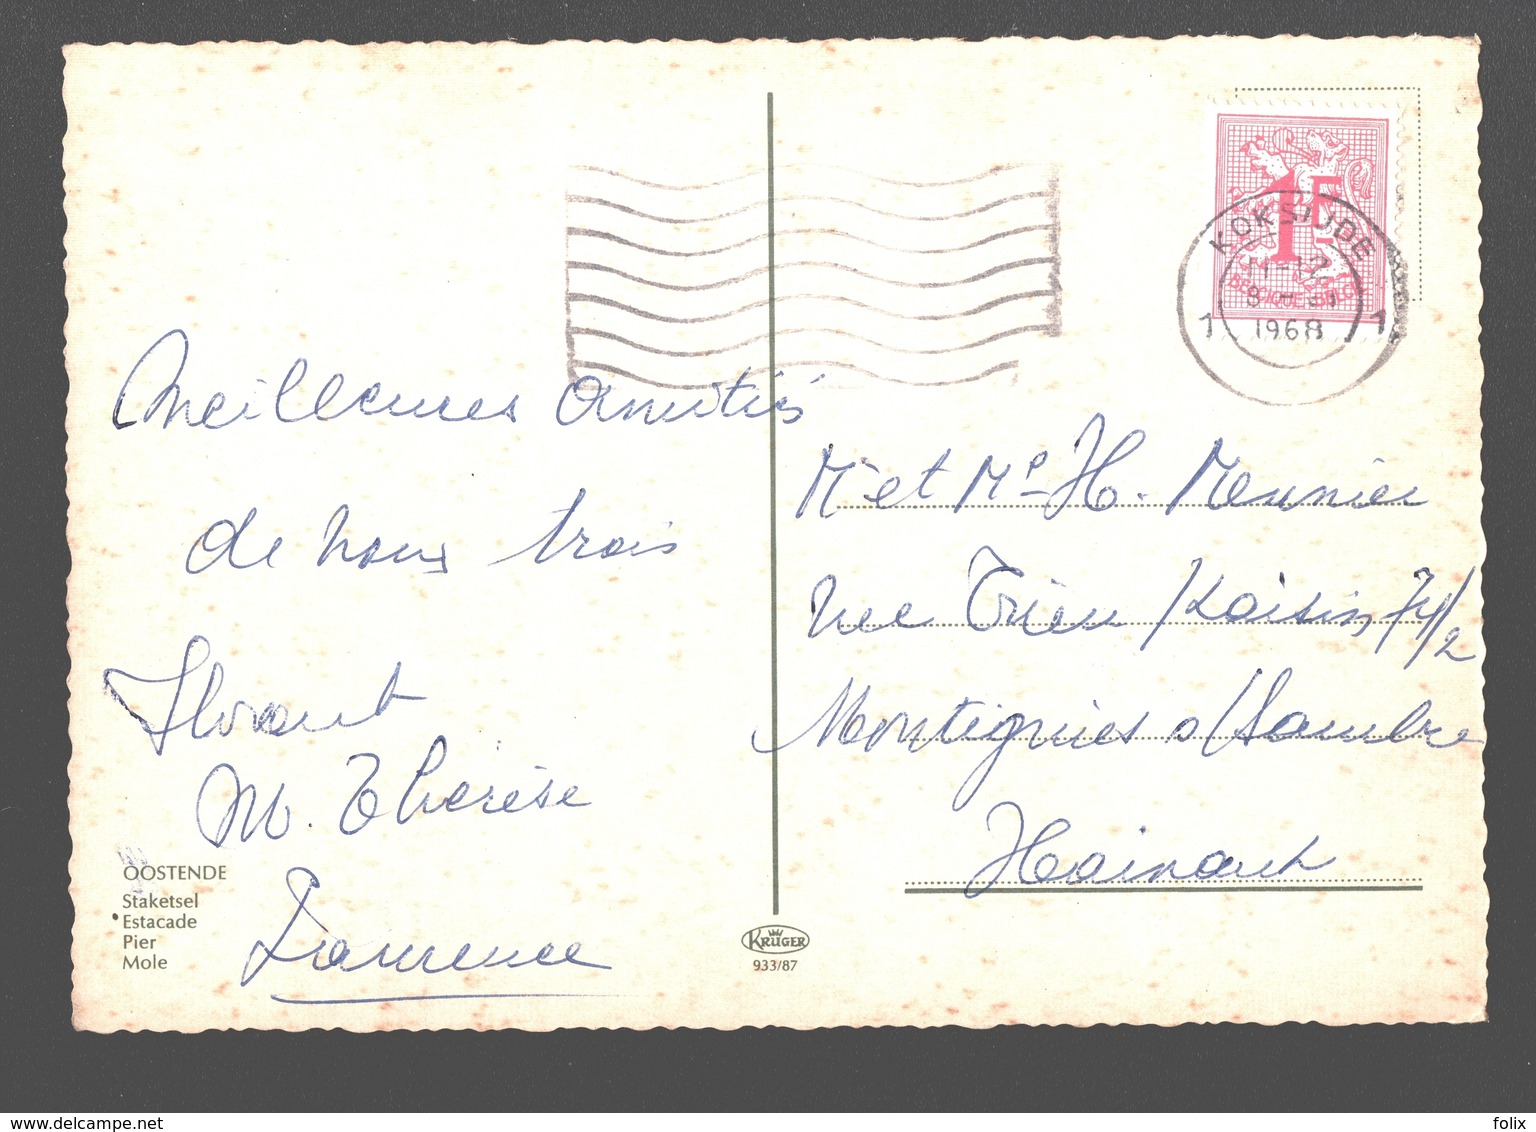 Meilleures amitiés
de nous trois
Florent
M. Thérèse
Laurence
OOSTENDE
Staketsel
Estacade
Pier
Mole
KRÜGER
933/87
1F
BELGIQUE-BELGIE
KOKSIJDE
11-12
1968
1 1
Mr et Me H. Meunier
rue Trieu Kaisin 74/2
Montignies s/Sambre
Hainaut
www.delcampe.net
folix